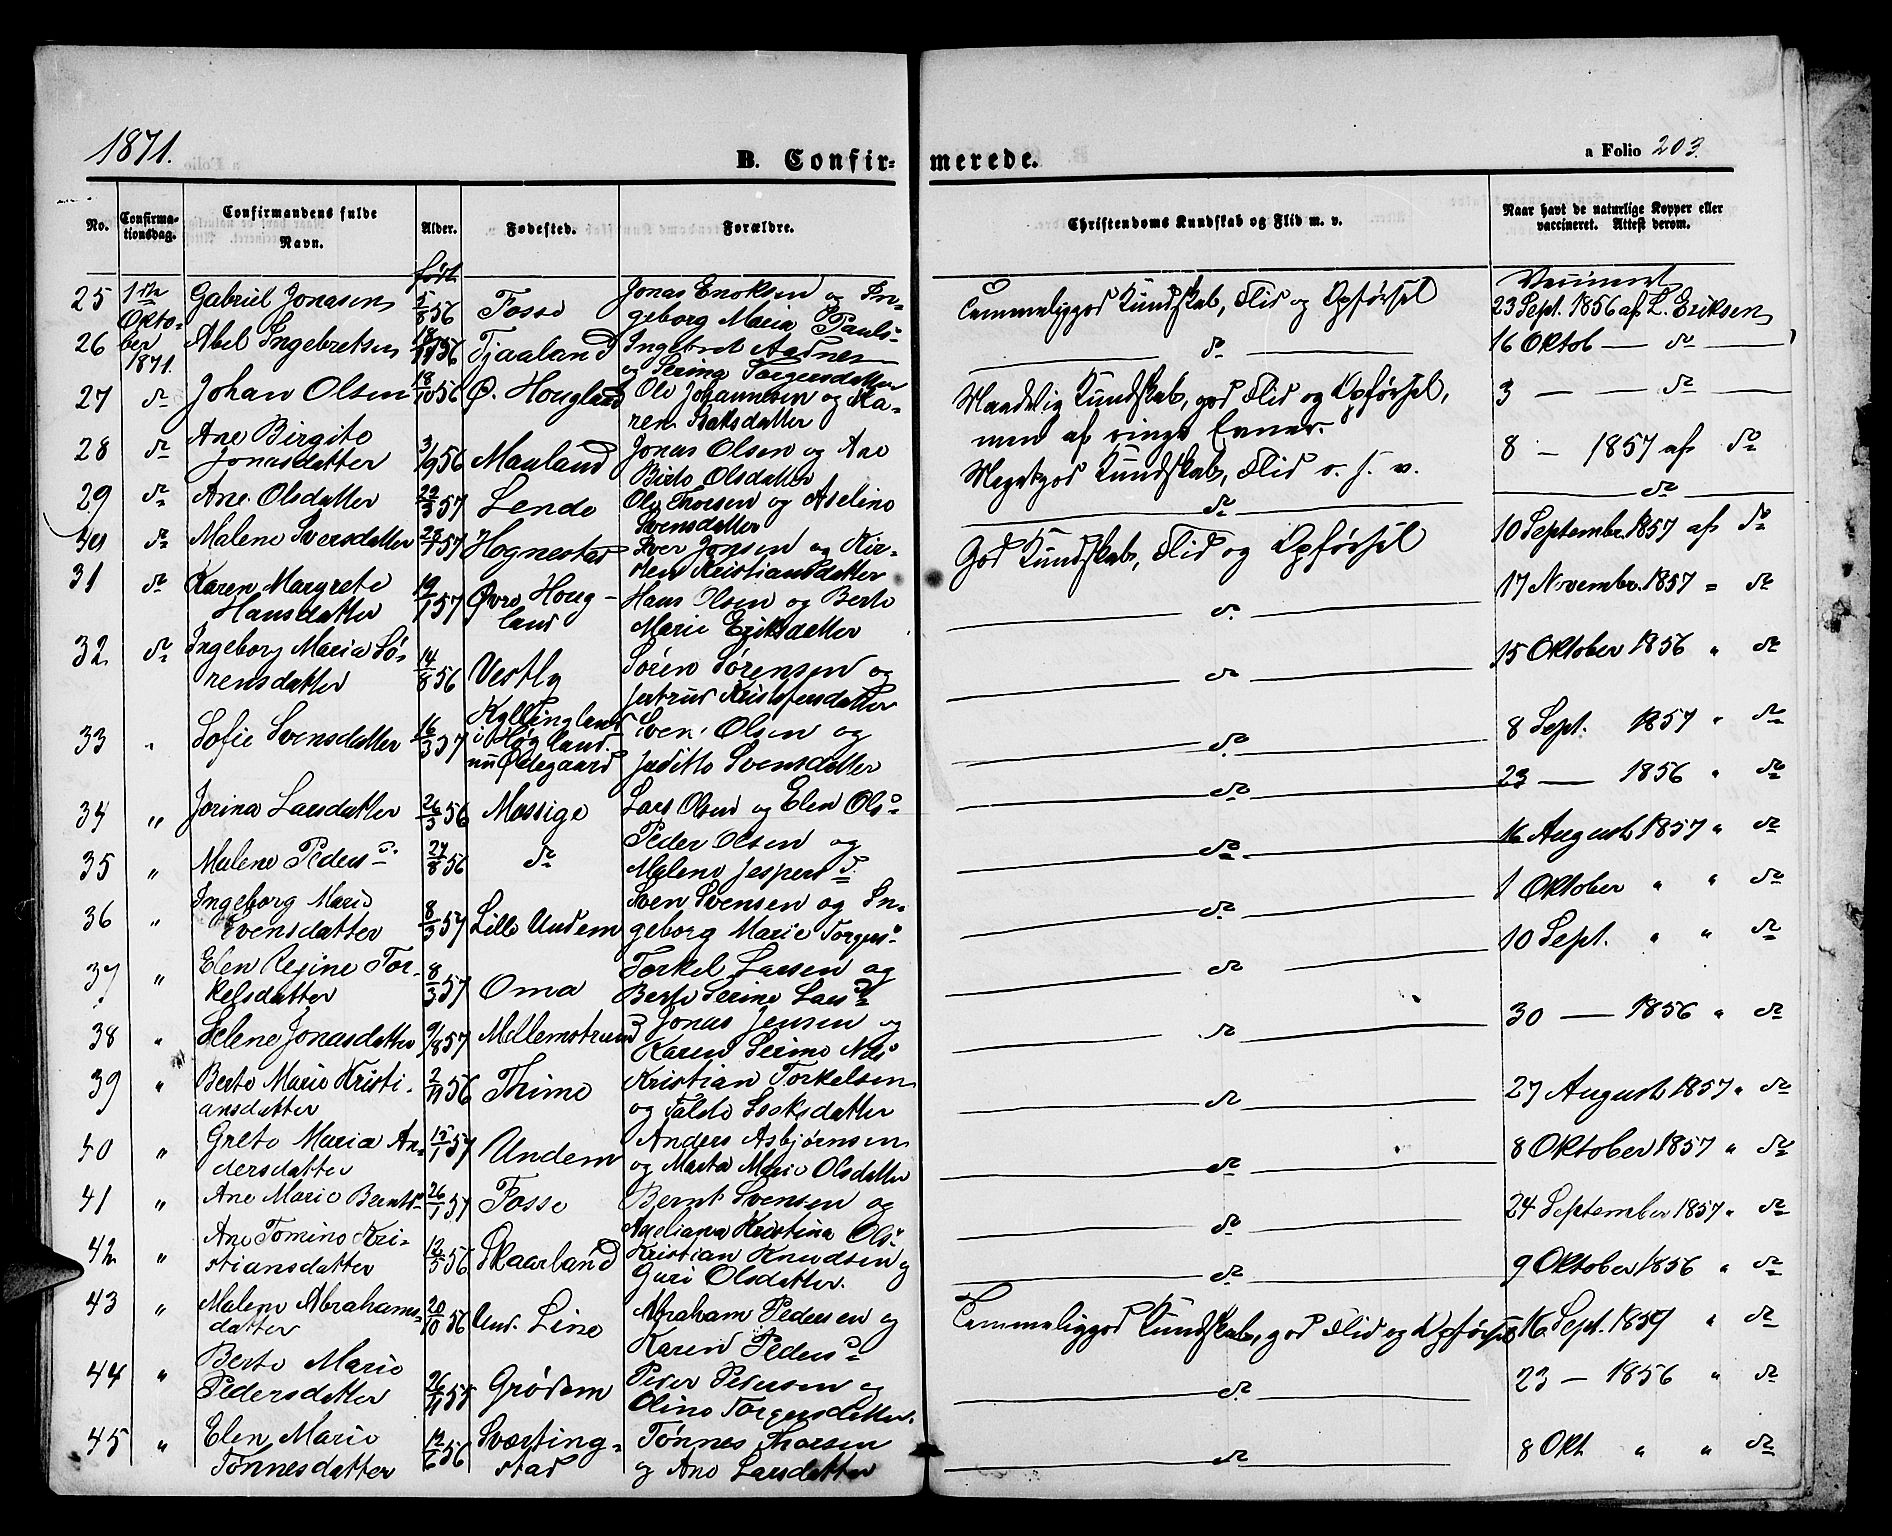 1871.
B. Confirmerede.
a Folio 203.
No.
Confirmationsdag.
Confirmandens fulde Navn.
Alder.
Fødested.
Forældre.
Christendoms Kundskab og Flid m. v.
Naar havt de naturlige Kopper eller vaccineret. Attest derom.
født
Vaccineret
25 1ste Oktober 1871. Gabriel Jonasen 56 Fosse Jonas Enoksen og Ingeborg Maria Pauls Temmeliggod Kundskab, Flid og Opførsel 23 Sept. 1856 af L. Eriksen
26 Abel Ingebretsen 56 Tjaaland Ingebret Aadnesen og Serina Torgersdatter do 16 Oktob — do —
27 do Johan Olsen 18/10 56 Ø. Hougland Ole Johannesen og Karen Isaksdatter Maadelig Kundskab, god Flid og Opførsel, men af ringe Evner. 3 — — do —
28 do Ane Birgite Jonasdatter 3/9 56 Mauland Jonas Olsen og Ane Birte Olsdatter Megetgod Kundskab, Flid o. s. v. 8 — 1857 af do
29 do Ane Olsdatter 57 Lende Ole Thorsen og Aseline Svensdatter do do
30 do Malene Sversdatter 57 Hognestad Sver Jonsen og Kirsten Kristiansdatter God Kundskab, Flid og Opførsel 10 Septembr. 1857 af do
31 do Karen Margrete Hansdatter 19/1 57 Øvre Hougland Hans Olsen og Berte Marie Eriksdatter do 17 Novembr. 1857 " do
32 do Ingeborg Maria Sørensdatter 14/8 56 Vestly Søren Sørensen og Jertrud Kristofersdatter do 15 Oktober 1856 " do
33 " Sofie Svensdatter 16/3 57 Kyllingland i Høgland. nu Ødegaard Sven Olsen og Juditte Svensdatter do 8 Sept. 1857 " do
34 " Jorina Larsdatter 26/3 56 Mossige Lars Olsen og Elen Ols do 23 — 1856 " do
35 " Malene Peders d. 56 do Peder Olsen og Malene Jespers d. do 16 August 1857 " do
36 " Ingeborg Marie Svensdatter 8/3 57 Lille Undem Sven Svensen og Ingeborg Marie Torgers do 1 Oktober " " do
37 " Elen Regine Torkelsdatter 8/3 57 Oma Torkel Larsen og Berte Serine Lars d do 10 Sept. " " do
38 " Selene Jonasdatter 9/8 57 Mellemstrand Jonas Jensen og Karen Serine Nils do 30 — 1856 " do
39 " Berte Marie Kristiansdatter 2/11 56 Thime Kristian Torkelsen og Talde Isaksdatter do 27 August 1857 " do
40 " Grete Maria Andersdatter 15/1 57 Undem Anders Asbjørnsen og Marta Marie Olsdatter do 8 Oktober 1857 " do
41 " Ane Marie Bernts 26/1 57 Fosse Bernt Svensen og Kristina Ols do 24 September 1857 " do
42 " Ane Tomine Kristiansdatter 12/5 56 Skaarland Kristian Knudsen og Guri Olsdatter. do 9 Oktober 1856 " do
43 " Malene Abrahamsdatter 20/10 56 Und. Line Abraham Pedersen og Karen Peders d Temmeliggod Kundskab, god Flid og Opførsel 16 Sept. 1857 " do
44 " Berte Marie Pedersdatter 26/11 55 Grødem Peder Pedersen og Oline Torgersdatter. do 23 — 1856 " do
45 " Elen Marie Tønnesdatter 12/6 56 Sværtingstad Tønnes Thorsen og Ane Larsdatter do 8 Okt " " do